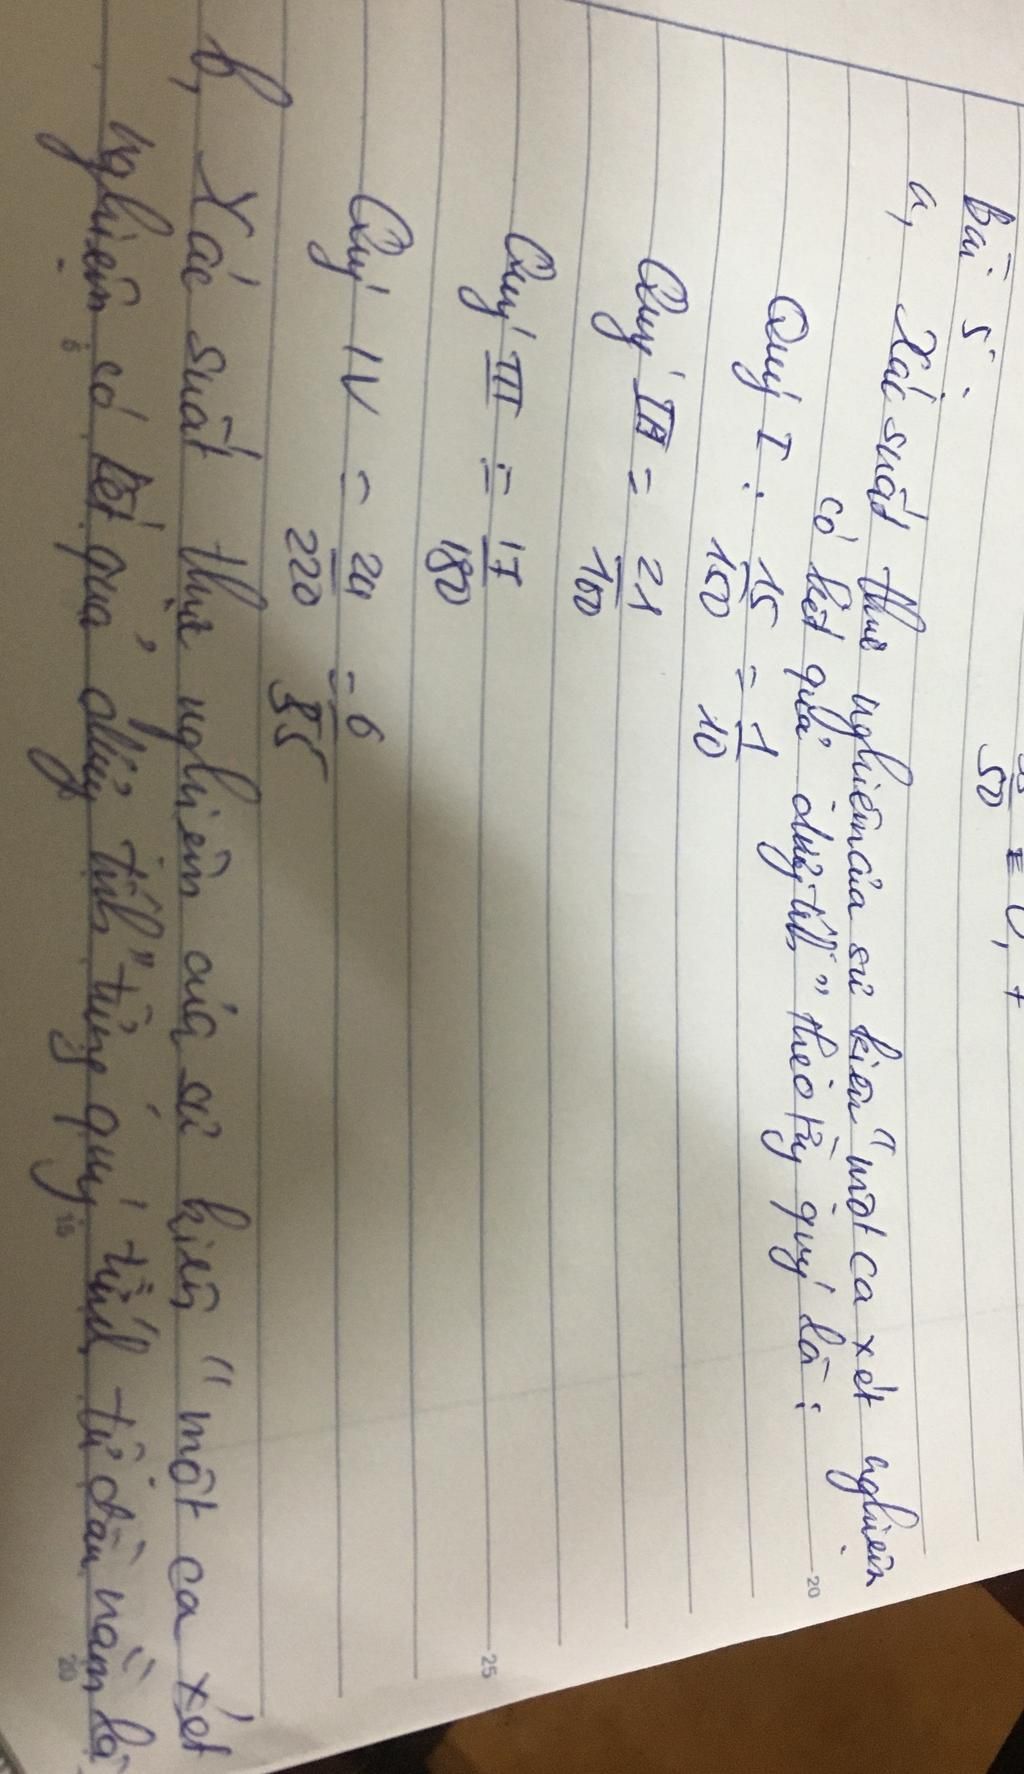 50 = 0,
Bài 5 :
a, Xác suất thực nghiệm của sự kiện "một ca xét nghiệm
có kết quả dương tính" theo từng quý là :
Quý I : 15/150 = 1/10
Quý II = 21/160
Quý III = 17/180
Quý IV = 24/220 = 6/55
b, Xác suất thực nghiệm của sự kiện "một ca xét
nghiệm có kết quả dương tính" từng quý tính từ đầu năm là
5
15
20
20
25